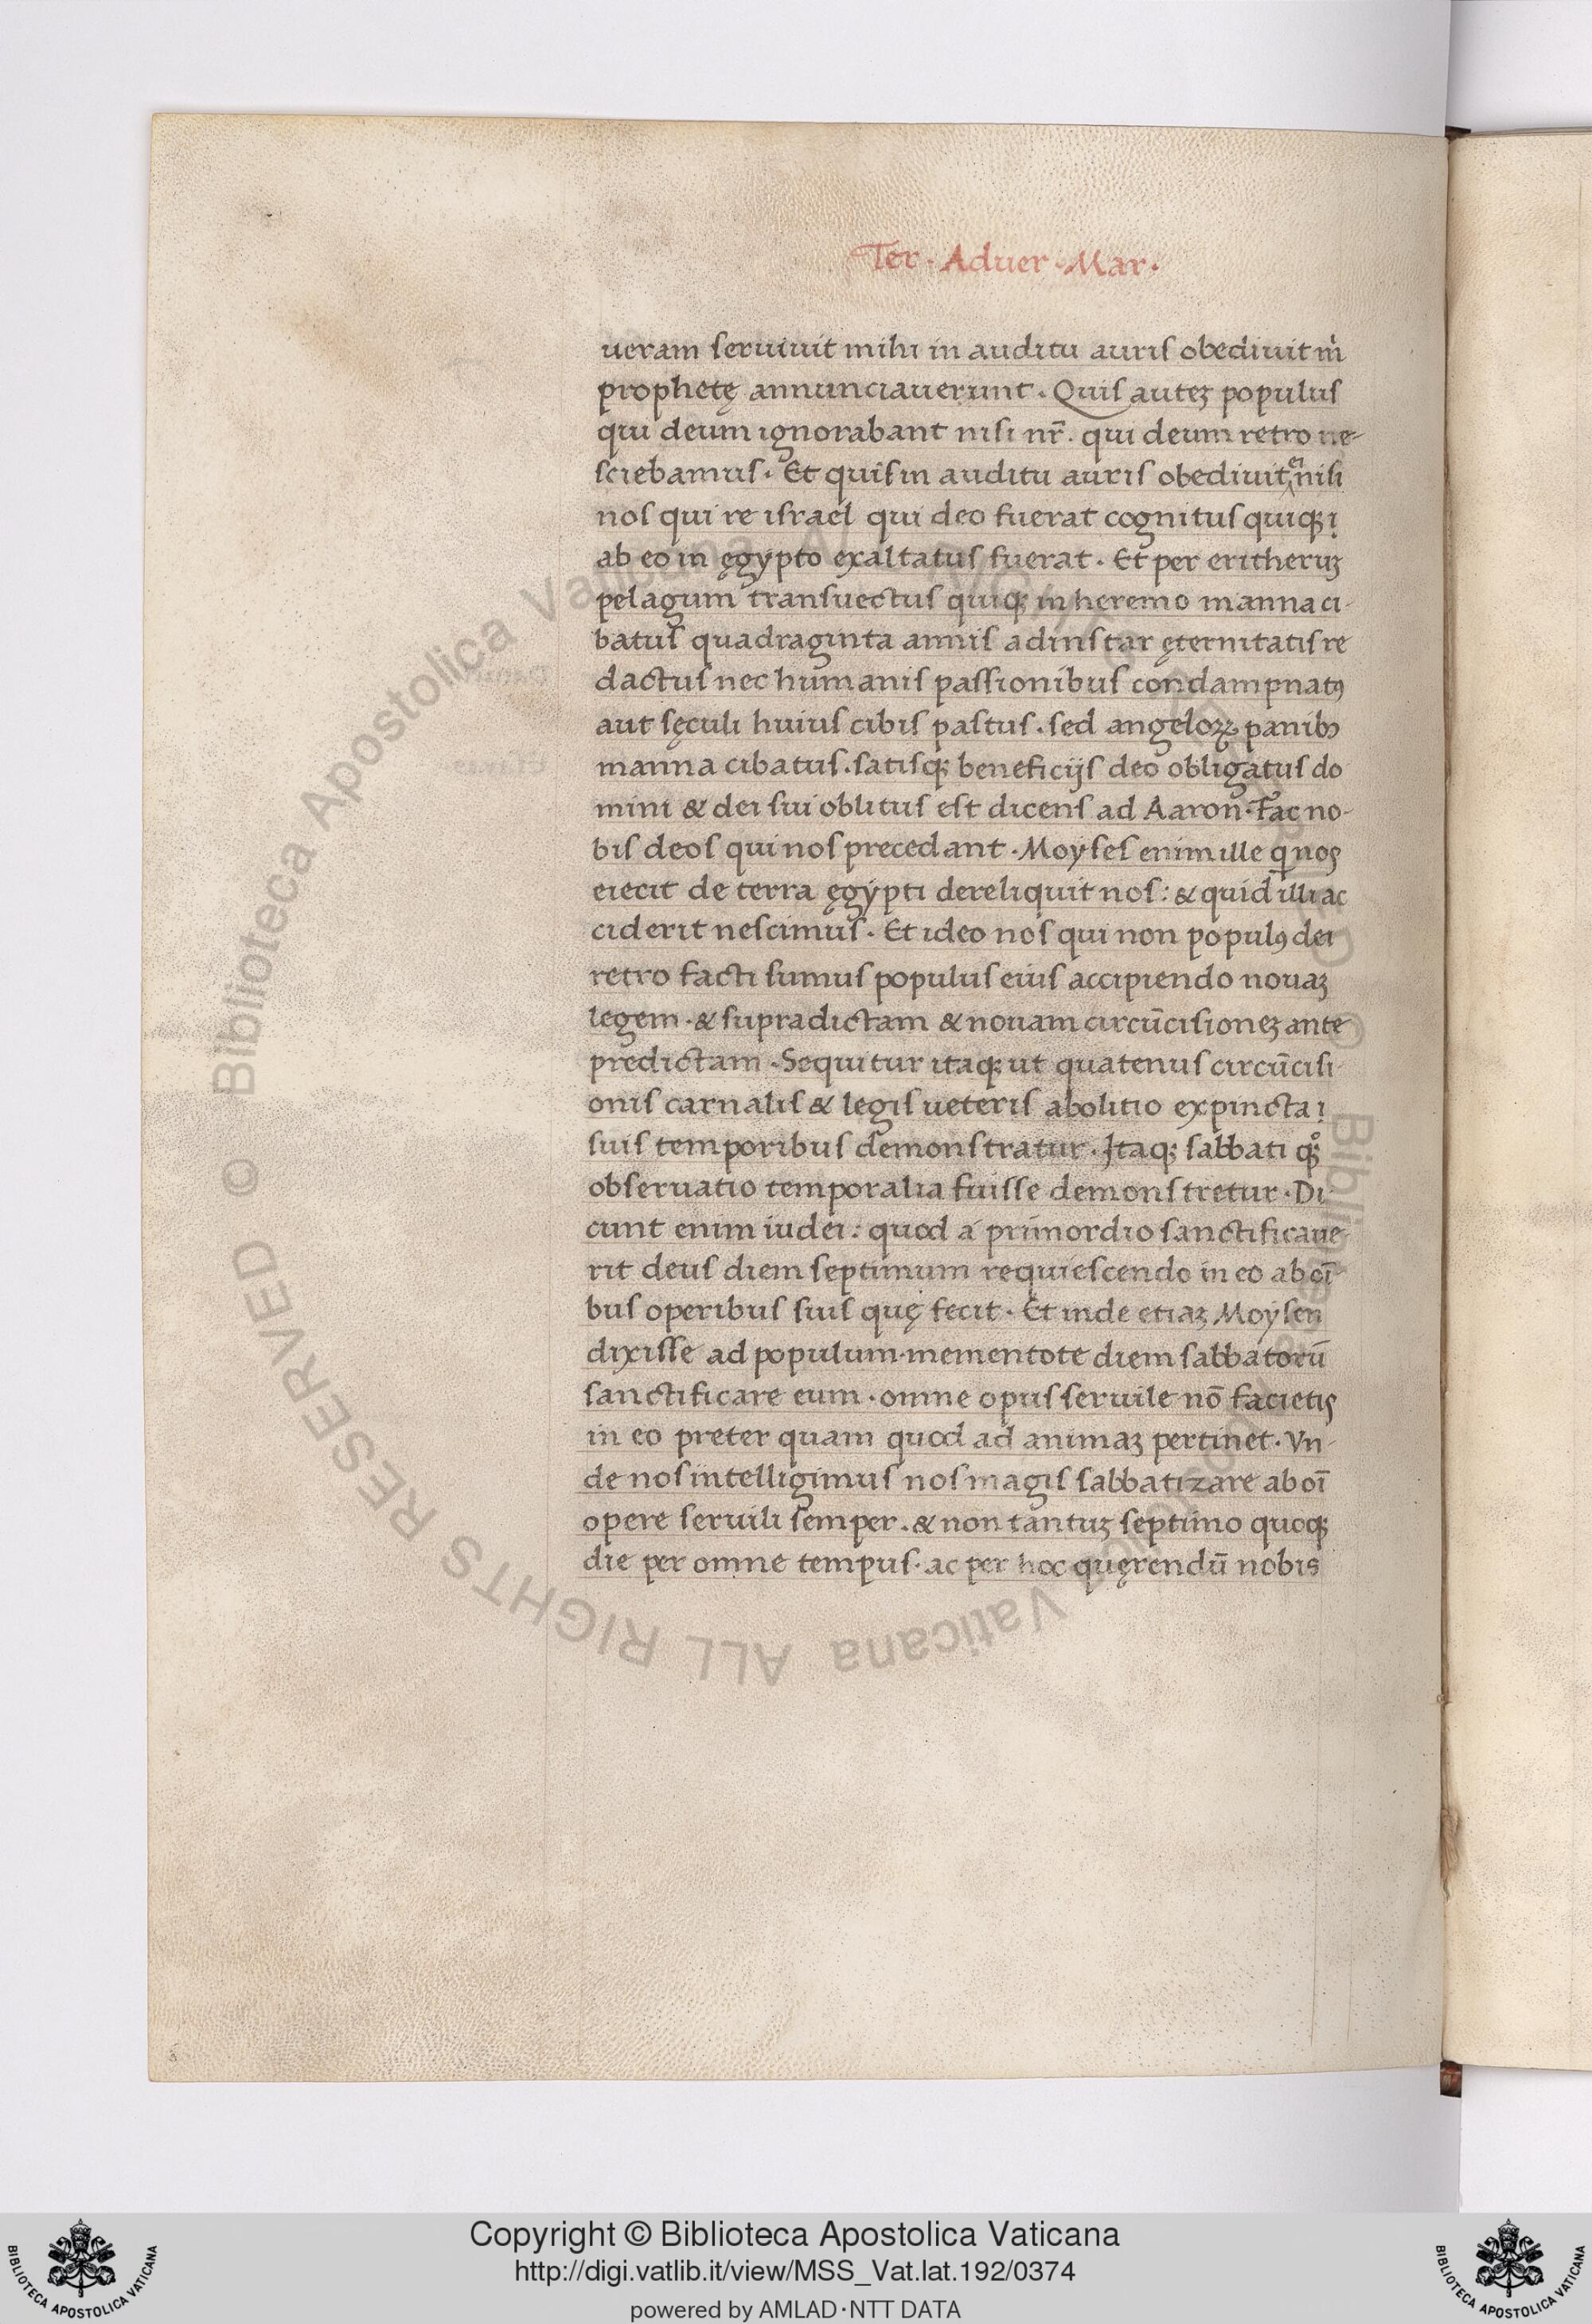 Ter · Aduer · Mar ·
ueram seruiuit mihi in auditu auris obediuit m̀
prophetę annunciauerunt · Quis auteꝫ populus
qui deum ignorabant nisi nr̄. qui deum retro ne-
sciebamus · Et quis in auditu auris obediuit ei nisi
nos qui re israel qui deo fuerat cognitus quiqꝫ ı
ab eo in ęgypto exaltatus fuerat · Et per eritheruꝫ
pelagum transuectus quiqꝫ in heremo manna ci-
batus quadraginta annis adinstar ęternitatis re
dactus nec humanis passionibus condampnatꝯ
aut sęculi huius cibis pastus · sed angeloꝝ panibꝯ
manna cibatus · satisqꝫ beneficijs deo obligatus do
mini & dei sui oblitus est dicens ad Aaron · Fac no-
bis deos qui nos precedant · Moyses enim ille q nos
eiecit de terra ęgypti dereliquit nos : & quid illi ac
ciderit nescimus · Et ideo nos qui non populꝯ dei
retro facti sumus populus eius accipiendo nouaꝫ
legem · & supradictam & nouam circūcisioneꝫ ante
predictam · Sequitur itaqꝫ ut quatenus circūcisi-
onis carnalis & legis ueteris abolitio expincta ı
suis temporibus demonstratur · Itaqꝫ sabbati qꝫͦ
obseruatio temporalia fuisse demonstretur · Di-
cunt enim iudei : quod á primordio sanctificaue-
rit deus diem septimum requiescendo in eo ab oī-
bus operibus suis quę fecit · Et inde etiaꝫ Moysen
dixisse ad populum · mementote diem sabbatorū
sanctificare eum · omne opus seruile nō facietis
in eo preter quam quod ad animaꝫ pertinet · Vn-
de nos intelligimus nos magis sabbatizare ab oī
opere seruili semper · & non tantuꝫ septimo quoqꝫ
die per omne tempus · ac per hoc quęrendū nobis
© Biblioteca Apostolica Vaticana ALL RIGHTS RESERVED
Copyright © Biblioteca Apostolica Vaticana
http://digi.vatlib.it/view/MSS_Vat.lat.192/0374
powered by AMLAD·NTT DATA
BIBLIOTECA APOSTOLICA VATICANA
BIBLIOTECA APOSTOLICA VATICANA